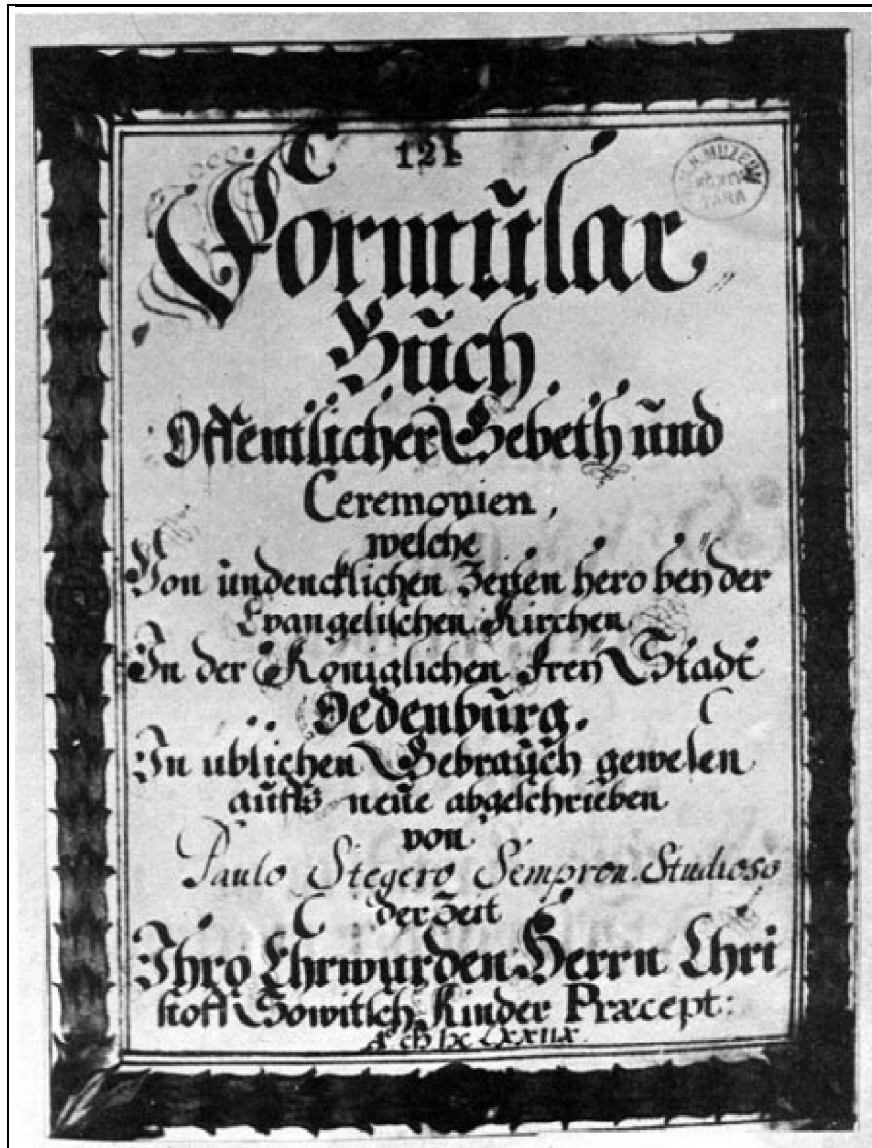 121
Formŭlar
Bŭch
Offentlicher Gebeth ŭnd
Ceremonien,
welche
Von ŭndencklichen Zeiten hero beÿ der
Evangelischen Kirchen
In der Königlichen Freÿ Stadt
Oedenbŭrg.
In ŭblichen Gebraŭch gewesen
aŭffs neŭe abgeschrieben
von
Paulo Stegero Sempron. Studioso
der Zeit
Ihro Ehrwŭrden Herrn Chri
stoff Sowitsch Kinder Præcept: